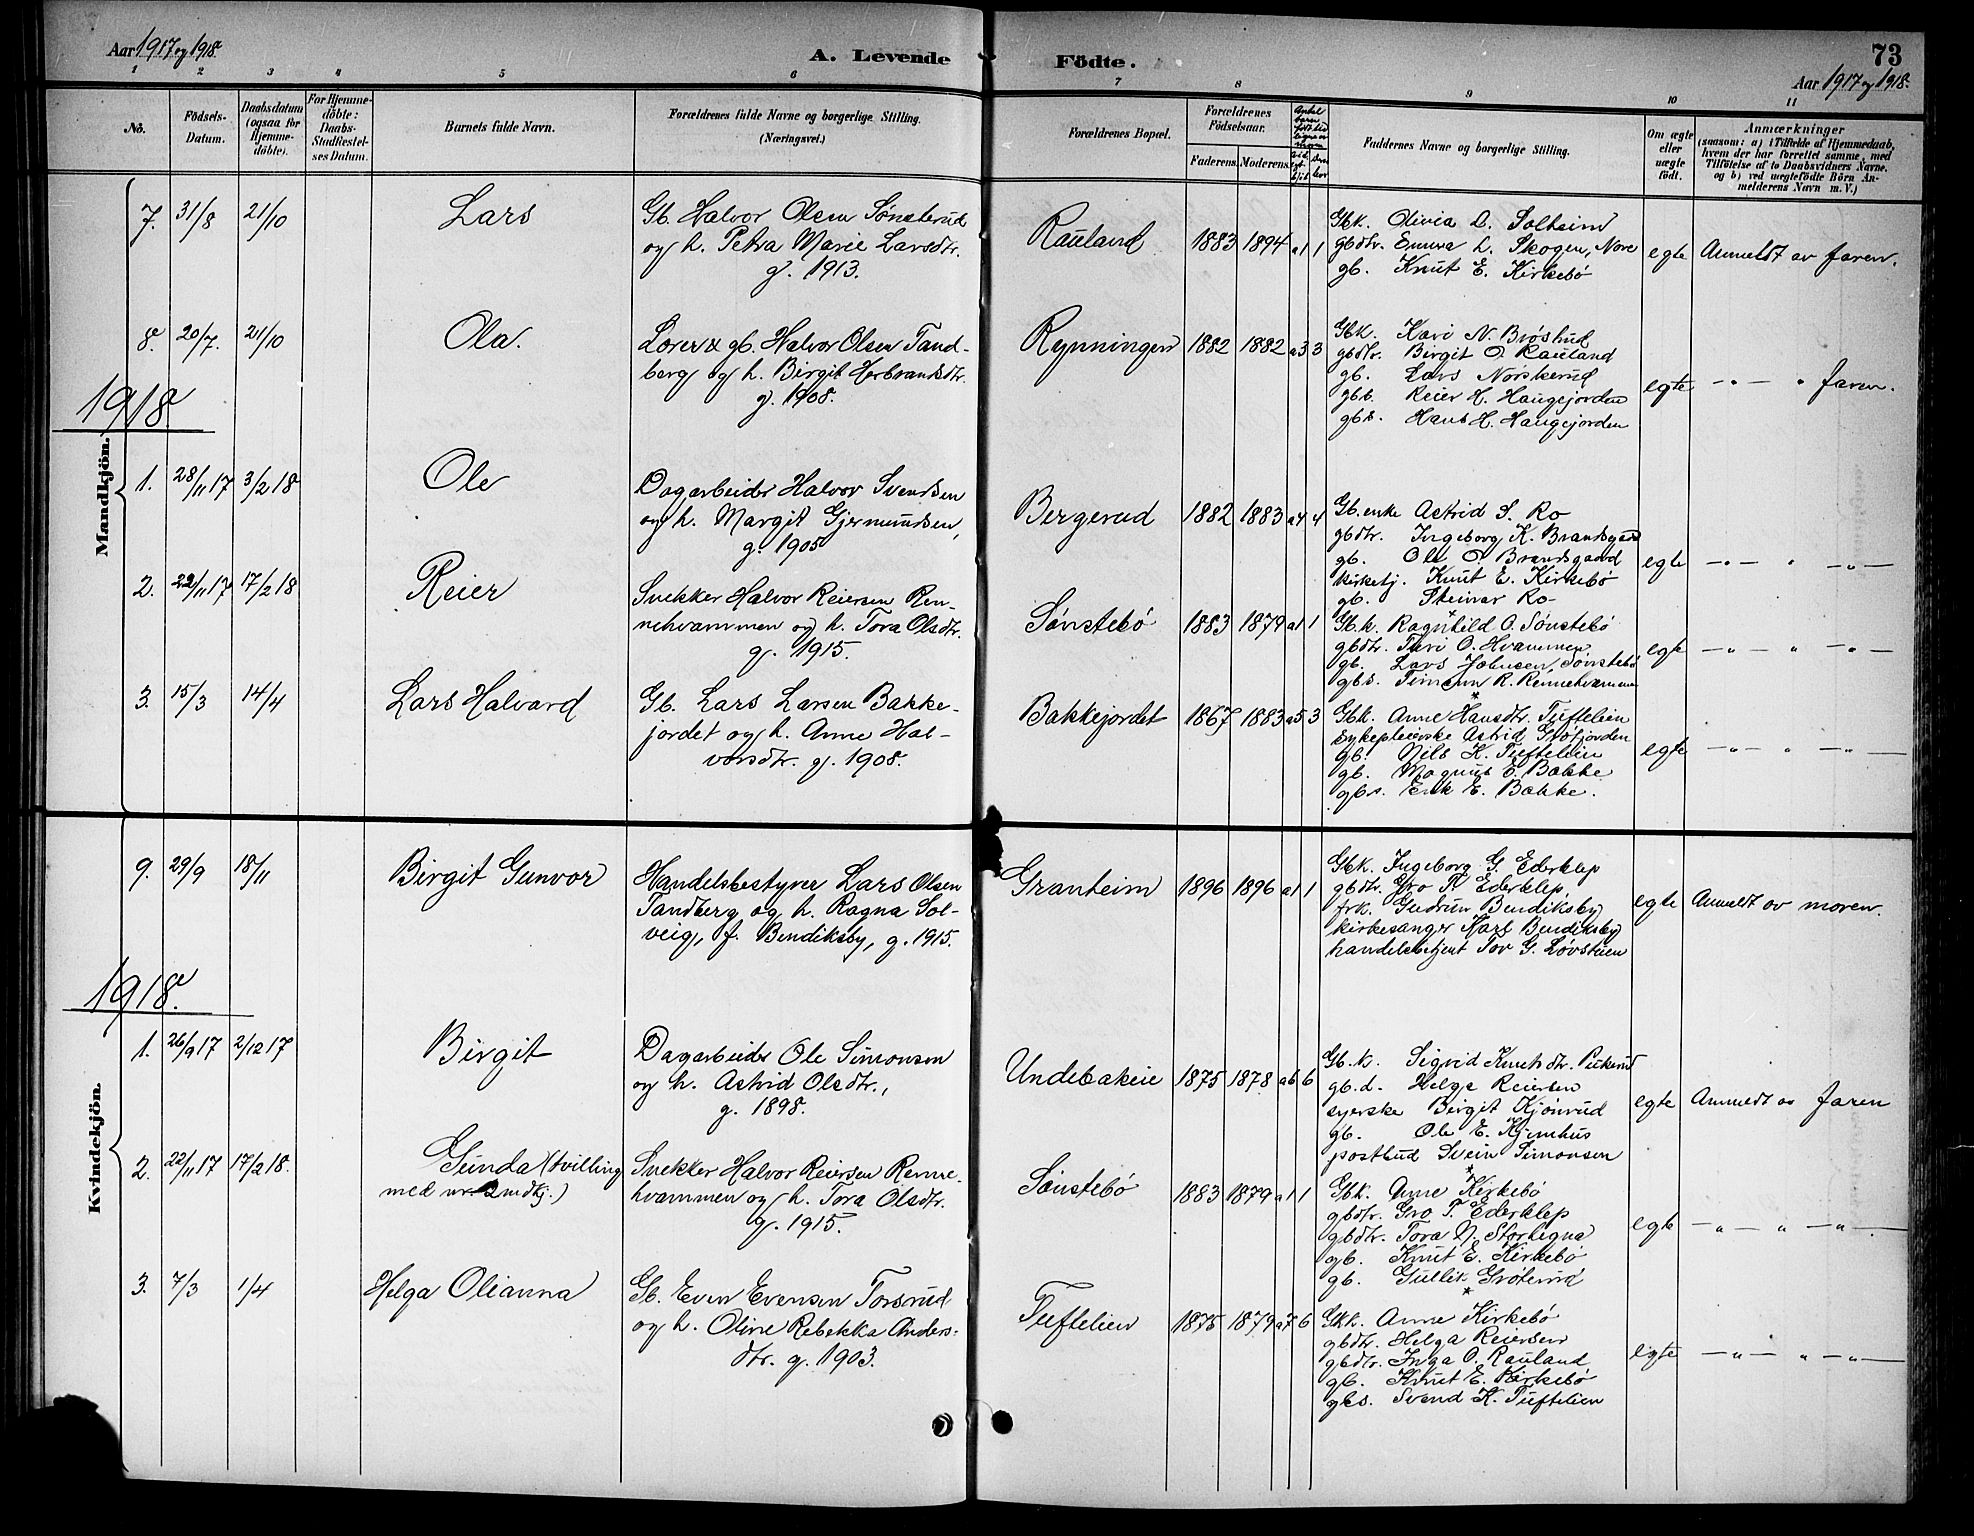 Aar 1917 og 1918.
A. Levende Födte.
73
Aar 1917 og 1918.
1 2 3 4 5 6 7 8 9 10 11
No.
Födsels-
Datum.
Daabsdatum
(ogsaa for
Hjemme-
döbte).
For Hjemme-
döbte:
Daabs-
Stadfæstel-
ses Datum.
Barnets fulde Navn.
Forældrenes fulde Navne og borgerlige Stilling.
(Næringsvei.)
Forældrenes Bopæl.
Forældrenes
Födselsaar.
Faderens. Moderens.
Faddernes Navne og borgerlige Stilling.
Om ægte
eller
uægte
födt.
Anmærkninger
(saasom: a) i Tilfælde af Hjemmedaab,
hvem der har forrettet samme, med
Tilföielse af to Daabsvidners Navne.
og b) ved uægtefödte Börn An-
melderens Navn m. V.)
Mandkjön.
7. 31/8 21/10 Lars
Gb. Halvor Olsen Sønsterud
og h. Petra Marie Larsdtr.
g. 1913.
Rauland 1883 1894 a1 1
Gbk. Olivia D. Solheim
gbdtr. Emma L. Skogen, Nore
gb. Knut E. Kirkebö
egte Anmeldt av faren.
8. 20/7. 21/10 Ola.
Lærer & gb. Halvor Olsen Tand-
berg og h. Birgit Herbrandsdtr.
g. 1908.
Rynningen 1882 1882 a3 3
Gbk. Kari N. Bröstrud
gbdtr. Birgit O. Rauland
gb. Lars Norskerud
gbs. Reier H. Haugejorden
gbs. Hans H. Haugejorden
egte —"— " faren.
1918
1. 28/11 17 3/2 18 Ole
Dagarbeider Halvor Svendsen
og h. Margit Gjermundsen,
g. 1905
Bergerud 1882 1883 a4 4
Gb.enke Astrid S. Ro
gbdtr. Ingeborg K. Brandsgard
gb. Ole O. Brandsgaard
kirketj. Knut E. Kirkebö
gb. Steinar Ro
egte —"— " —"—
2. 22/11 17 17/2 18 Reier
Snekker Halvor Reiersen Ren-
nehvammen og h. Tora Olsdtr.
g. 1915.
Sønstebö 1883 1879 a1 1
Gb.k. Ragnhild O. Sönstebö
gbdtr. Turi O. Hvammen
gb. Lars Johnsen Sönstebö
gbs. Timann R. Rennehvammen
egte —"— " —"—
3. 15/3 14/4 Lars Halvard
Gb. Lars Larsen Bakke-
jordet og h. Anne Hal-
vorsdtr. g. 1908.
Bakkejordet 1867 1883 a5 3
Gbk. Anne Hansdtr. Tuftelien
sykepleierske Astrid Gröfjorden
gb. Nils K. Tuftelien
gb. Magnus E. Bakke
gbs. Erik E. Bakke.
egte —"— " —"—
Kvindekjön.
9. 29/9 18/11 Birgit Gunvor
Handelsbestyrer Lars Olsen
Tandberg og h. Ragna Sol-
veig, f. Bendiksby, g. 1915.
Granheim 1896 1896 a1 1
Gbk. Ingeborg G. Ederklep
gbdtr. Gro T. Ederklep,
frk. Gudrun Bendiksby
kirkesanger Karl Bendiksby
handelsbetjent Tov G. Lövstuen
egte Anmeldt av moren.
1918.
1. 26/9 17 2/12 17 Birgit
Dagarbeider Ole Simonsen
og h. Astrid Olsdtr.,
g. 1898.
Undebakeie 1875 1878 a6 6
Gb.k. Sigrid Knutsdtr. Pukerud
gb.d. Helga Reiersen
syerske Birgit Kjönrud
gb. Ole E. Kjemhus
postbud Svein Simonsen
egte Anmeldt av faren
2. 22/11 17 17/2 18. Gunda (tvilling
med nr 2 mdkj.)
Snekker Halvor Reiersen Renne-
hvammen og h. Tora Olsdtr.
g. 1915.
Sönstebö 1883 1879 a1 1
Gbk. Anne Kirkebö
gbdtr. Gro T. Ederklep
gbdtr. Tora N. Storhegna
gb. Knut E. Kirkebö
gb. Gullik Gröterud
egte —"— " —"—
3. 7/3 1/4 Helga Olianna
Gb. Even Evensen Torsrud
og h. Oline Rebekka Anders-
dtr. g. 1903.
Tuftelien 1875 1879 a7 6
Gbk. Anne Kirkebö
gbdtr. Helga Reiersen
gbdtr. Inga O. Rauland
gb. Knut E. Kirkebö
gbs. Svend K. Tuftelien
egte —"— " —"—